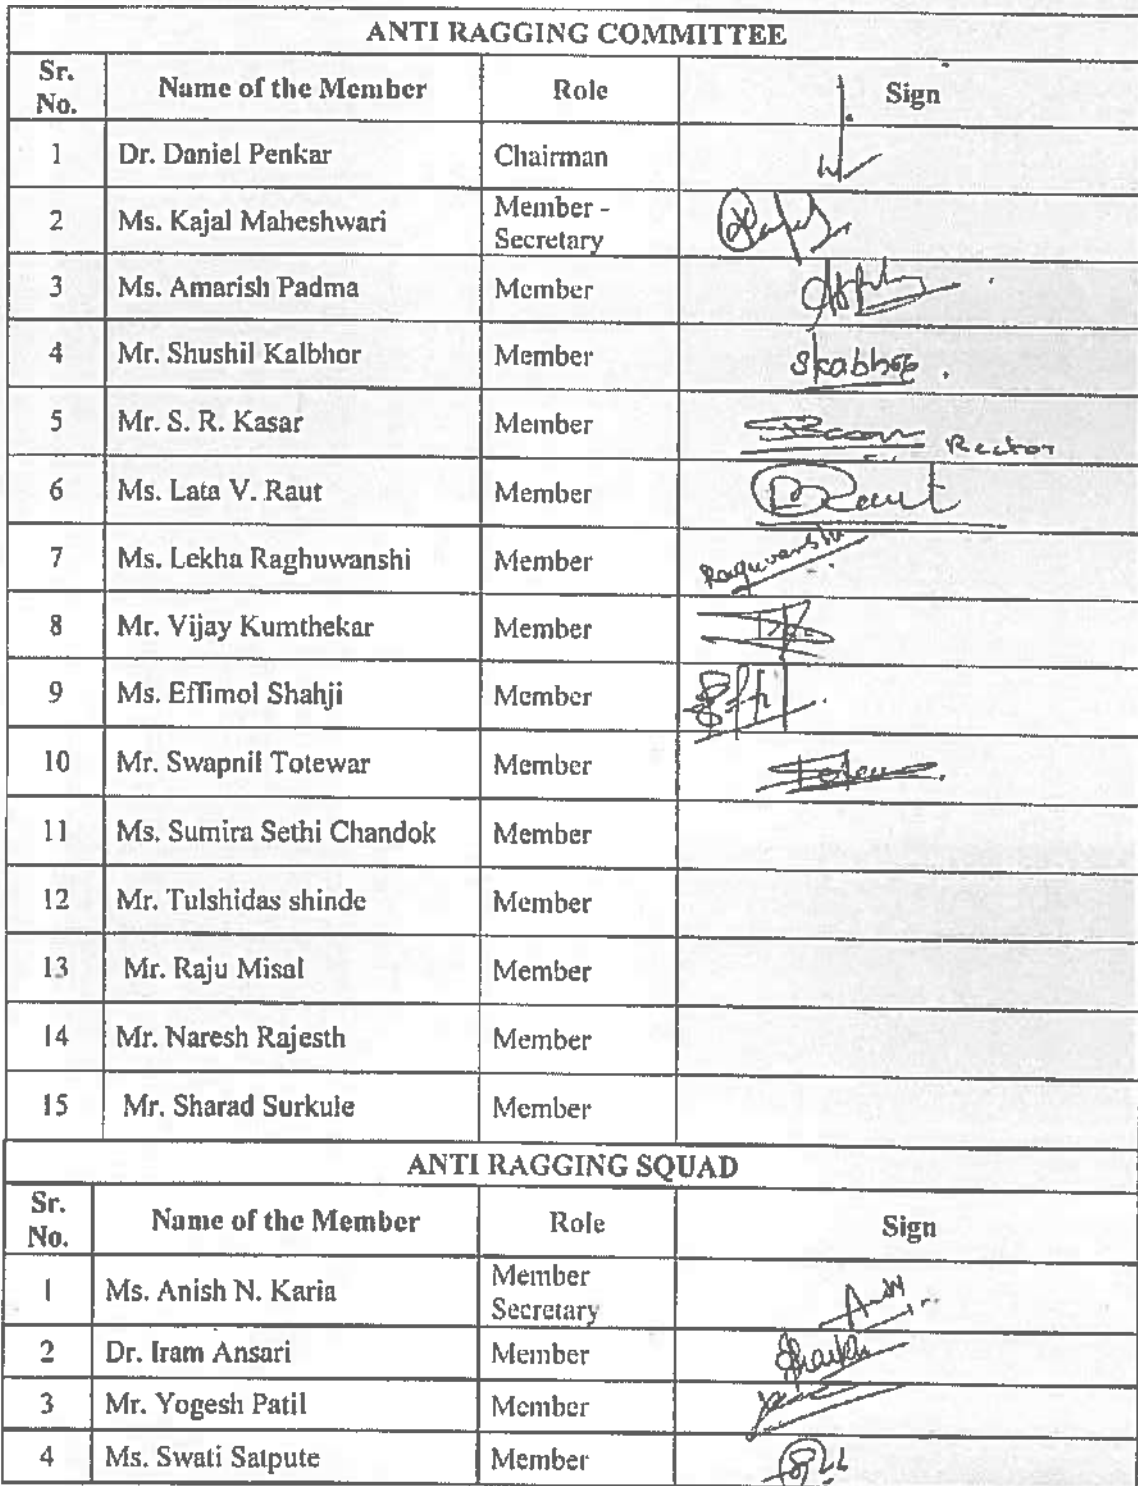 ANTI RAGGING COMMITTEE
Sr. No. Name of the Member Role Sign
1 Dr. Daniel Penkar Chairman
2 Ms. Kajal Maheshwari Member - Secretary
3 Ms. Amarish Padma Member
4 Mr. Shushil Kalbhor Member Skabhor
5 Mr. S. R. Kasar Member Rector
6 Ms. Lata V. Raut Member Raut
7 Ms. Lekha Raghuwanshi Member Raguvanshi
8 Mr. Vijay Kumthekar Member
9 Ms. Effimol Shahji Member
10 Mr. Swapnil Totewar Member
11 Ms. Sumira Sethi Chandok Member
12 Mr. Tulshidas shinde Member
13 Mr. Raju Misal Member
14 Mr. Naresh Rajesth Member
15 Mr. Sharad Surkule Member
ANTI RAGGING SQUAD
Sr. No. Name of the Member Role Sign
1 Ms. Anish N. Karia Member Secretary
2 Dr. Iram Ansari Member Shaikh
3 Mr. Yogesh Patil Member
4 Ms. Swati Satpute Member